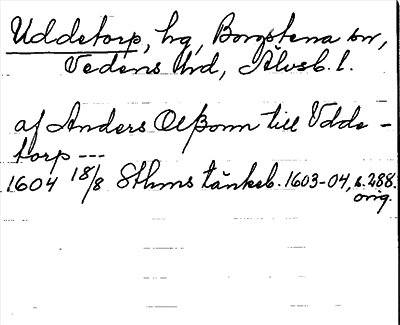 Uddetorp, hg, Borgstena sn,
Vedens hd, Älvsb. l.
af Anders Olßonn till Udde-
torp ---
1604 18/8 Sthms tänkeb. 1603-04, s. 288.
orig.